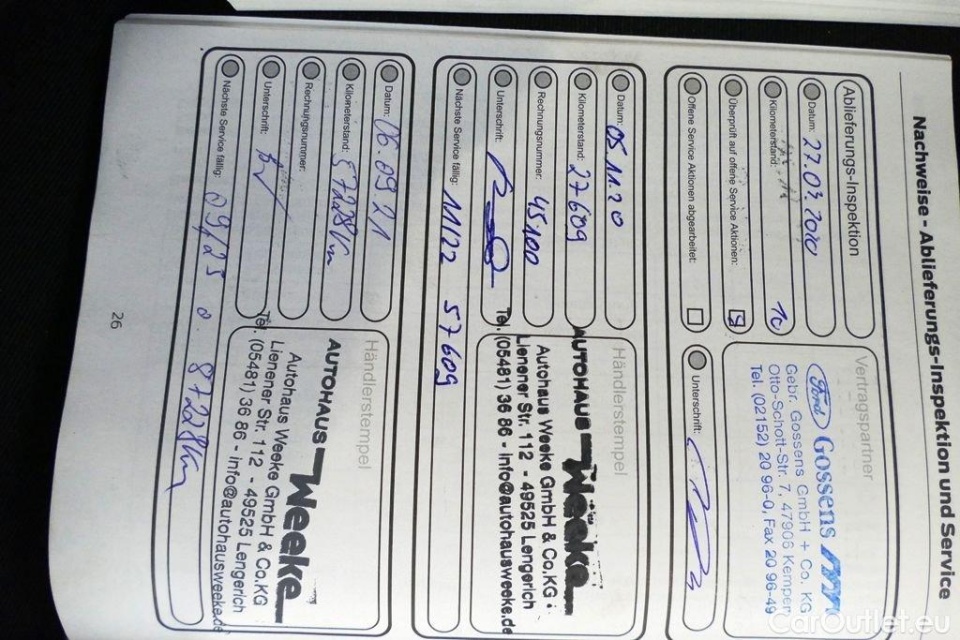 Nachweise - Ablieferungs-Inspektion und Service
Ablieferungs-Inspektion
Datum: 27.03.2020
Kilometerstand: 10
Überprüft auf offene Service Aktionen:
Offene Service Aktionen abgearbeitet:
Vertragspartner
Ford Gossens
Gebr. Gossens GmbH + Co. KG
Otto-Schott-Str. 7, 47906 Kempen
Tel. (02152) 20 96-0, Fax 20 96-49
Unterschrift:
Datum: 05.11.20
Kilometerstand: 27609
Rechnungsnummer: 45100
Unterschrift:
Nächste Service fällig: 11/22 57609
Händlerstempel
AUTOHAUS Weeke
Autohaus Weeke GmbH & Co.KG
Lienener Str. 112 - 49525 Lengerich
Tel. (05481) 36 86 - info@autohausweeke.de
Datum: 06.09.21
Kilometerstand: 57228km
Rechnungsnummer:
Unterschrift:
Nächste Service fällig: 09/23 o. 87228km
Händlerstempel
AUTOHAUS Weeke
Autohaus Weeke GmbH & Co.KG
Lienener Str. 112 - 49525 Lengerich
Tel. (05481) 36 86 - info@autohausweeke.de
26
CarOutlet.eu